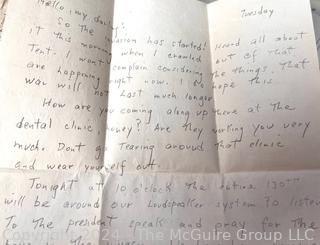 Tuesday
Hello, my darling:
So the invasion has started! Heard all about
it this morning when I crawled out of that
Tent. I won't complain considering the things that
are happening right now. I hope this
war will not last much longer
How are you coming along up there at the
dental clinic, honey? Are they working you very
much. Dont go Tearing around that clinic
and wear yourself out.
Tonight at 10 o'clock The entire 130th
will be around our Loudspeaker system To listen
To the president speak and pray for The
2024, The McGuire Group LLC